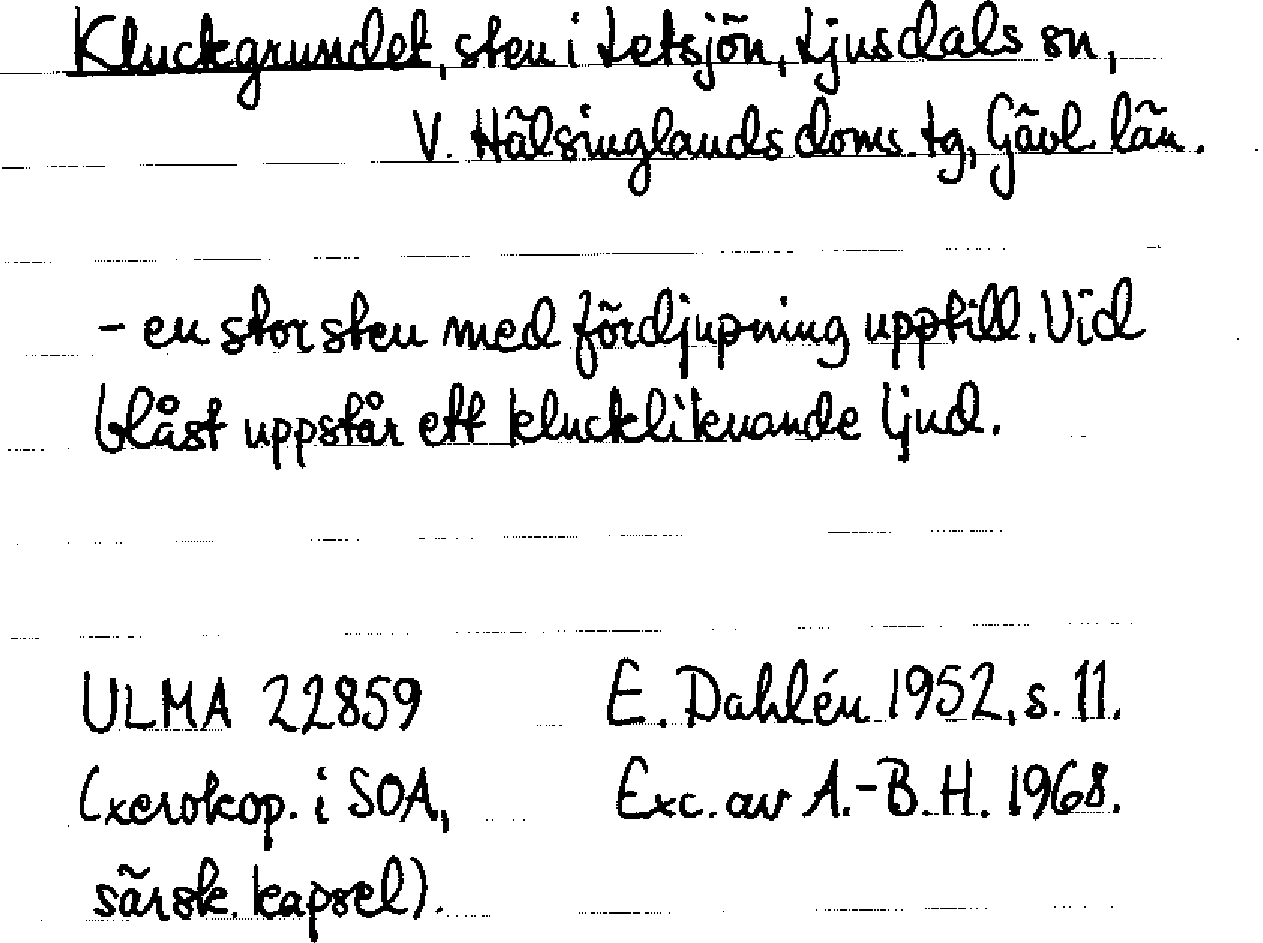 Kluckgrundet, sten i Letsjön, Ljusdals sn,
V. Hälsinglands doms. tg, Gävl. län.
– en stor sten med fördjupning upptill. Vid
blåst uppstår ett kluckliknande ljud.
ULMA 22859 E. Dahlén 1952, s. 11.
(xerokop. i SOA, Exc. av A.-B. H. 1968.
särsk. kapsel).